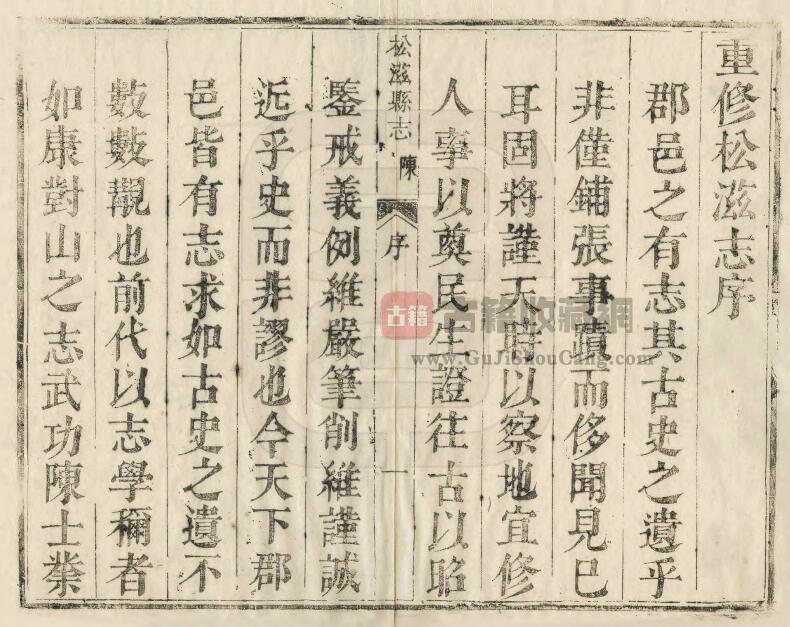 重修松滋志序
郡邑之有志其古史之遺乎
非僅鋪張事蹟而侈聞見已
耳固將謹天時以察地宜修
人事以奠民生證往古以昭
松滋縣志 陳 序 一
鑒戒義例維嚴筆削維謹誠
近乎史而非謬也今天下郡
邑皆有志求如古史之遺不
數數覯也前代以志學稱者
如康對山之志武功陳士業
古籍 古籍收藏網
www.GuJiShouCang.com